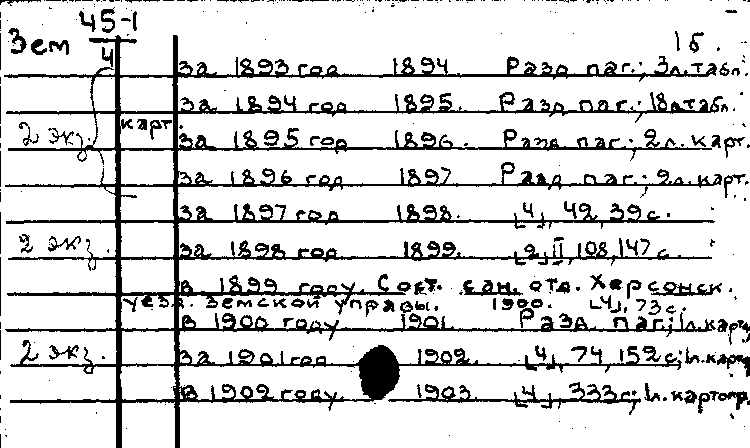 45-1
Зем 4 1б.
за 1893 год 1894 Разд. паг.; 3 л. табл.
за 1894 год 1895. Разд. паг.; 18 л табл.
карт.
2 экз. за 1895 год 1896. Разд. паг.; 2 л. карт.
за 1896 год 1897 Разд. паг.; 2 л. карт.
за 1897 год 1898. [4], 42, 39 с.
2 экз. за 1898 год 1899. [2], II, 108, 147 с.
в 1899 году. Сост. сан. отд. Херсонск.
уезд. земской управы. 1900. [4], 73 с.
в 1900 году 1901. Разд. паг.; 1 л. картогр
2 экз. за 1901 год 1902. [4], 74, 152 с; 1 л. картогр
в 1902 году. 1903. [4], 333 с; 1 л. картогр.